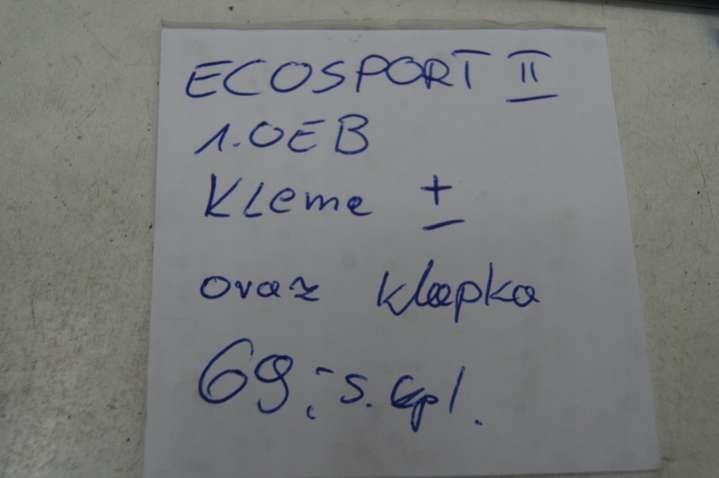 ECOSPORT II
1.0EB
Kleme +
oraz klapka
69,- s. kpl.